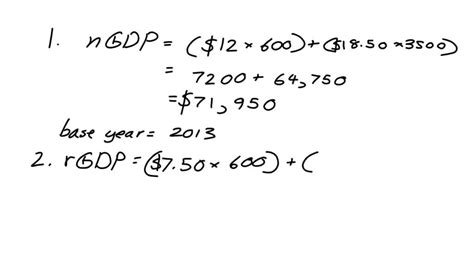 1. nGDP = ($12 × 600) + ($18.50 × 3500)
= 7200 + 64,750
= $71,950
base year = 2013
2. rGDP = ($7.50 × 600) + (